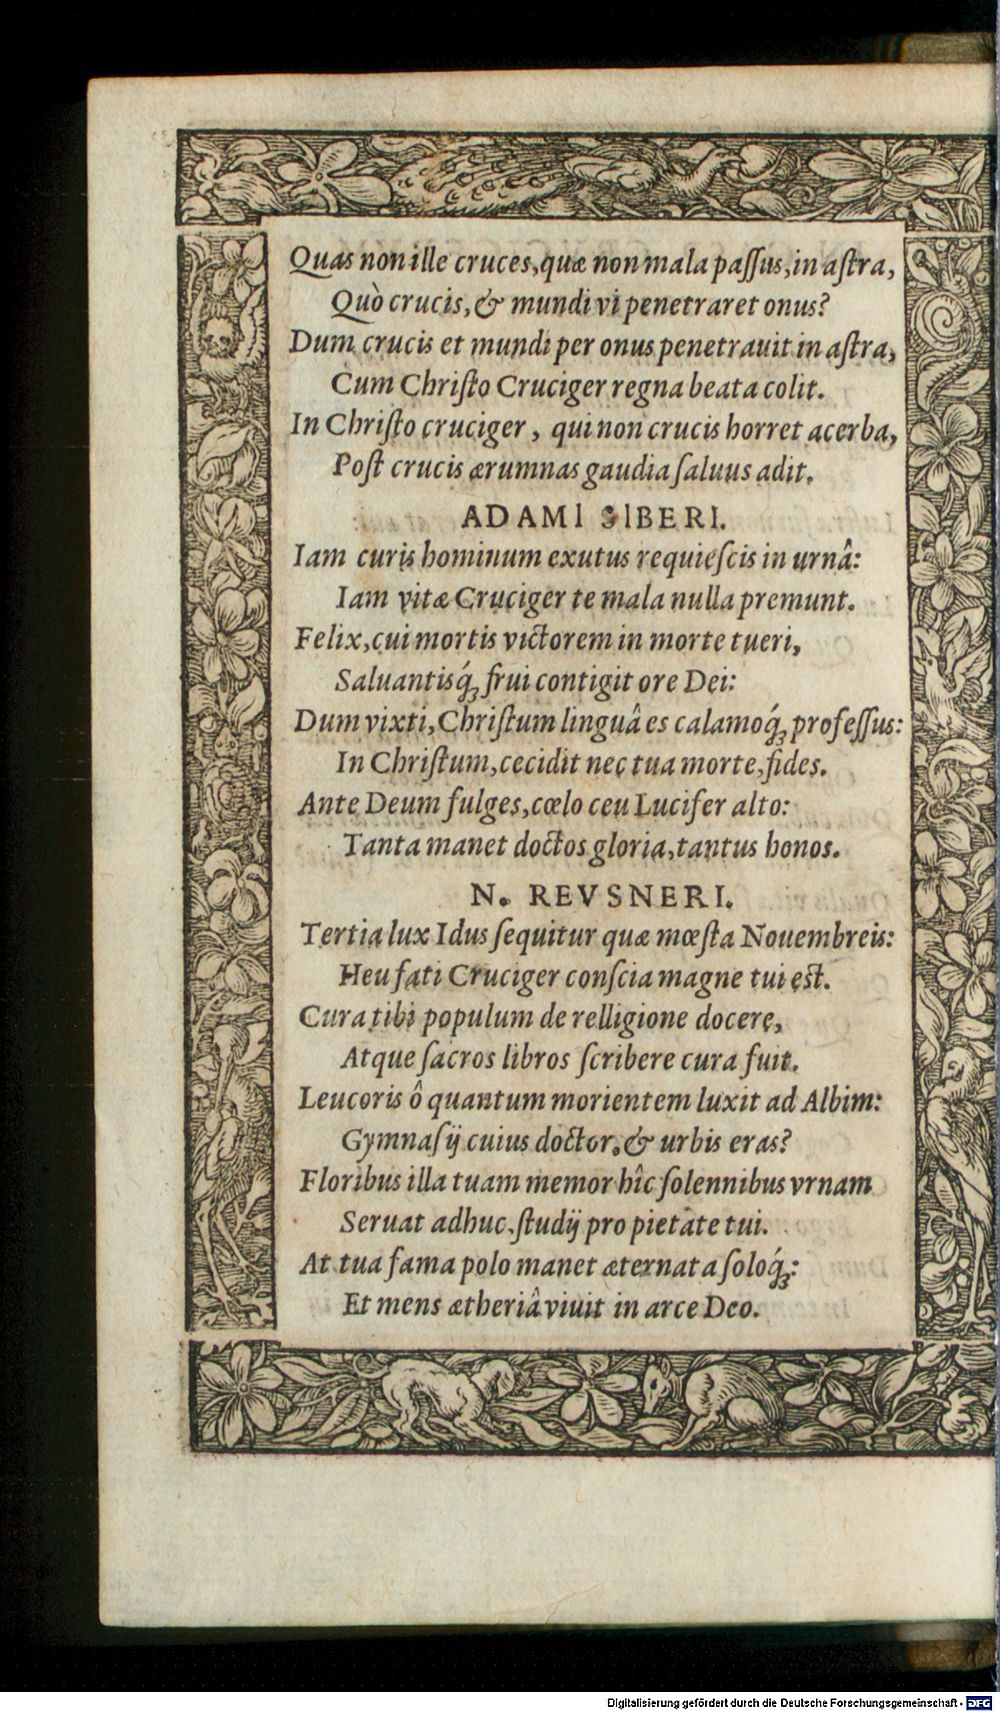 Quas non ille cruces, quæ non mala paſſus, in aſtra,
Quò crucis, & mundi vi penetraret onus?
Dum crucis et mundi per onus penetrauit in aſtra,
Cum Chriſto Cruciger regna beata colit.
In Chriſto cruciger, qui non crucis horret acerba,
Poſt crucis ærumnas gaudia ſaluus adit.
ADAMI SIBERI.
Iam curis hominum exutus requieſcis in urnâ:
Iam vitæ Cruciger te mala nulla premunt.
Felix, cui mortis victorem in morte tueri,
Saluantisq́ꝫ frui contigit ore Dei:
Dum vixti, Chriſtum linguâ es calamoq́ꝫ profeſſus:
In Chriſtum, cecidit nec tua morte, fides.
Ante Deum fulges, cœlo ceu Lucifer alto:
Tanta manet doctos gloria, tantus honos.
N. REVSNERI.
Tertia lux Idus ſequitur quæ mœſta Nouembreis:
Heu fati Cruciger conſcia magne tui eſt.
Cura tibi populum de relligione docere,
Atque ſacros libros ſcribere cura fuit.
Leucoris ô quantum morientem luxit ad Albim:
Gymnaſij cuius doctor, & urbis eras?
Floribus illa tuam memor hîc ſolennibus vrnam
Seruat adhuc, ſtudij pro pietate tui.
At tua fama polo manet æternata ſoloq́ꝫ:
Et mens ætheriâ viuit in arce Deo.
Digitalisierung gefördert durch die Deutsche Forschungsgemeinschaft - DFG